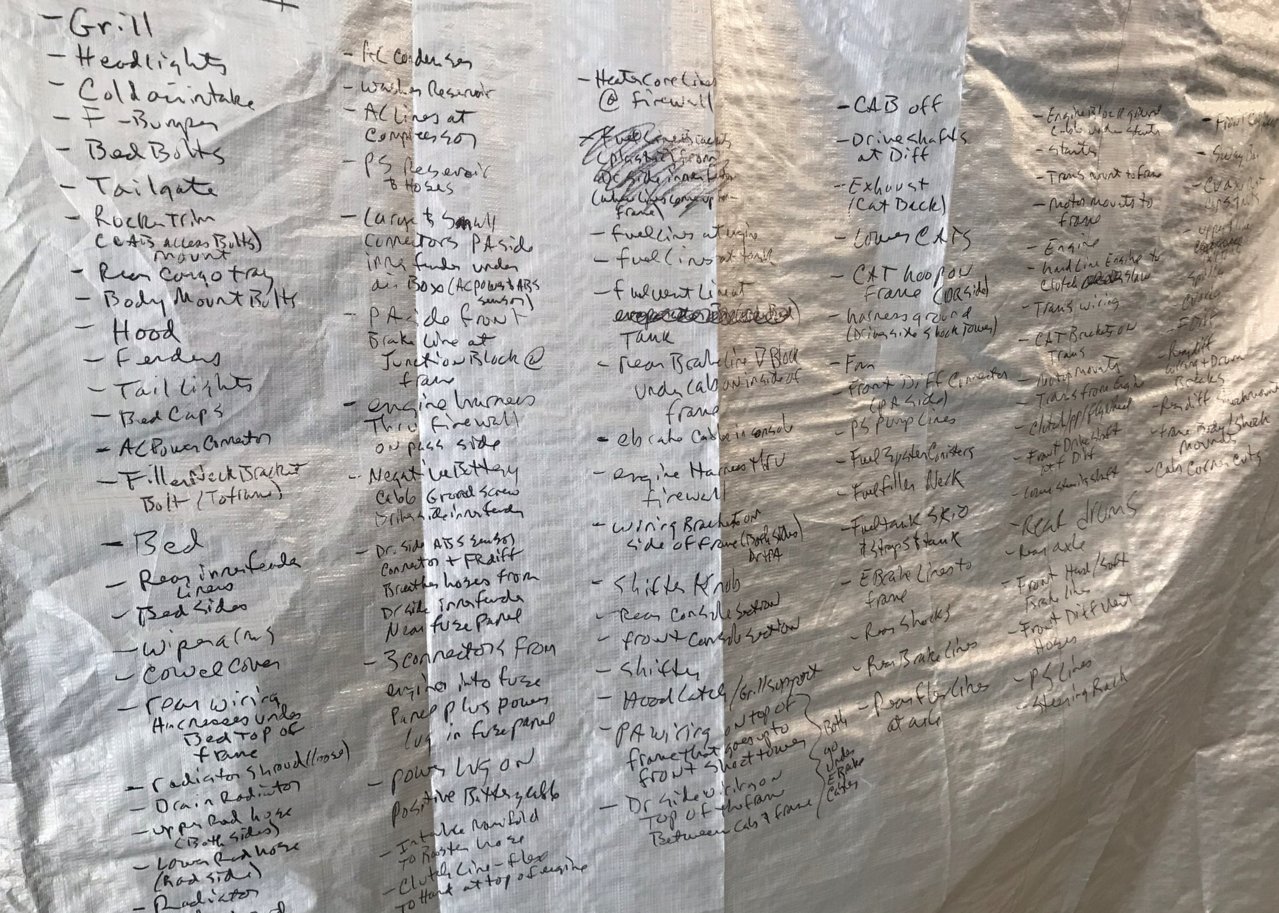 - Grill
- Headlights
- Cold air intake
- F-Bumper
- Bed Bolts
- Tailgate
- Rocker Trim
(CAB access Bolts)
mount
- Rear Cargo tray
- Body Mount Bolts
- Hood
- Fenders
- Tail Lights
- Bed Caps
- AC Power Connector
- Filler Neck Bracket
Bolt (To frame)
- Bed
- Rear inner fender
Liners
- Bed Sides
- Wiper arms
- Cowel Cover
- rear wiring
Harnesses under
Bed Top of
frame
- radiator shroud (loose)
- Drain Radiator
- upper Rad hose
(Both sides)
- Lower Rad hose
(Rad side)
- Radiator
- AC Condenser
- Washer Reservoir
- AC Lines at
Compressor
- PS Reservoir
& Hoses
- Large & Small
Connectors PA side
inner fender under
air Box (AC Power & ABS
sensor)
- PA side front
Brake Line at
Junction Block @
frame
- engine harness
Thru firewall
on pass side
- Negative Battery
Cable Ground Screw
Driver side inner fender
- Dr. Side ABS sensor
Connector + FR diff
Breather hoses from
Dr side inner fender
Near fuse Panel
- 3 connectors from
engine into fuse
Panel plus power
lug in fuse panel
- power lug on
Positive Battery cable
- Intake Manifold
To Booster hose
- Clutch Line - flex
To Hard at top of engine
- Heater Core Lines
@ firewall
- fuel Lines at engine
- fuel Lines at tank
- fuel vent Line at
Tank
- rear Brake line Block
under cab on inside of
frame
- ebrake Cable in console
- engine Harness thru
firewall
- wiring Brackets on
side of frame (Both sides)
Dr + PA
- Shifter Knob
- Rear Console section
- front Console section
- Shifter
- Hood Latch / Grill Support
- PA wiring on top of
frame that goes up to
front Shock towers
- Dr side wiring on
Top of the frame
Between cab & frame
Both
go
under
E Brake
Cables
- CAB off
- Drive shafts
at Diff
- Exhaust
(Cat Back)
- Lower CATS
- CAT hoop on
frame (DR side)
- harness ground
(Driver side Shock Tower)
- Fan
- Front Diff Connector
(PA side)
- PS Pump Lines
- Fuel filler Neck
- Fuel tank SKID
& Straps & tank
- E Brake Lines to
frame
- Rear shocks
- Rear Brake Lines
- Rear flex Lines
at axle
- Engine Block ground
- Trans mount to frame
- Motor mounts to
frame
- Engine
- hard Line Engine to
Clutch
- Trans wiring
- CAT Brackets on
Trans
- Motor mounts
- Trans from Engine
- Front Drive shaft
at Diff
- Rear drums
- Rear axle
- Front Hard/Soft
Brake lines
- Front Diff Vent
Hoses
- PS Lines
- Steering Rack
- Sway Bar
- Rear diff
- frame Body/Shock
mounts
- Cab Corner Cuts